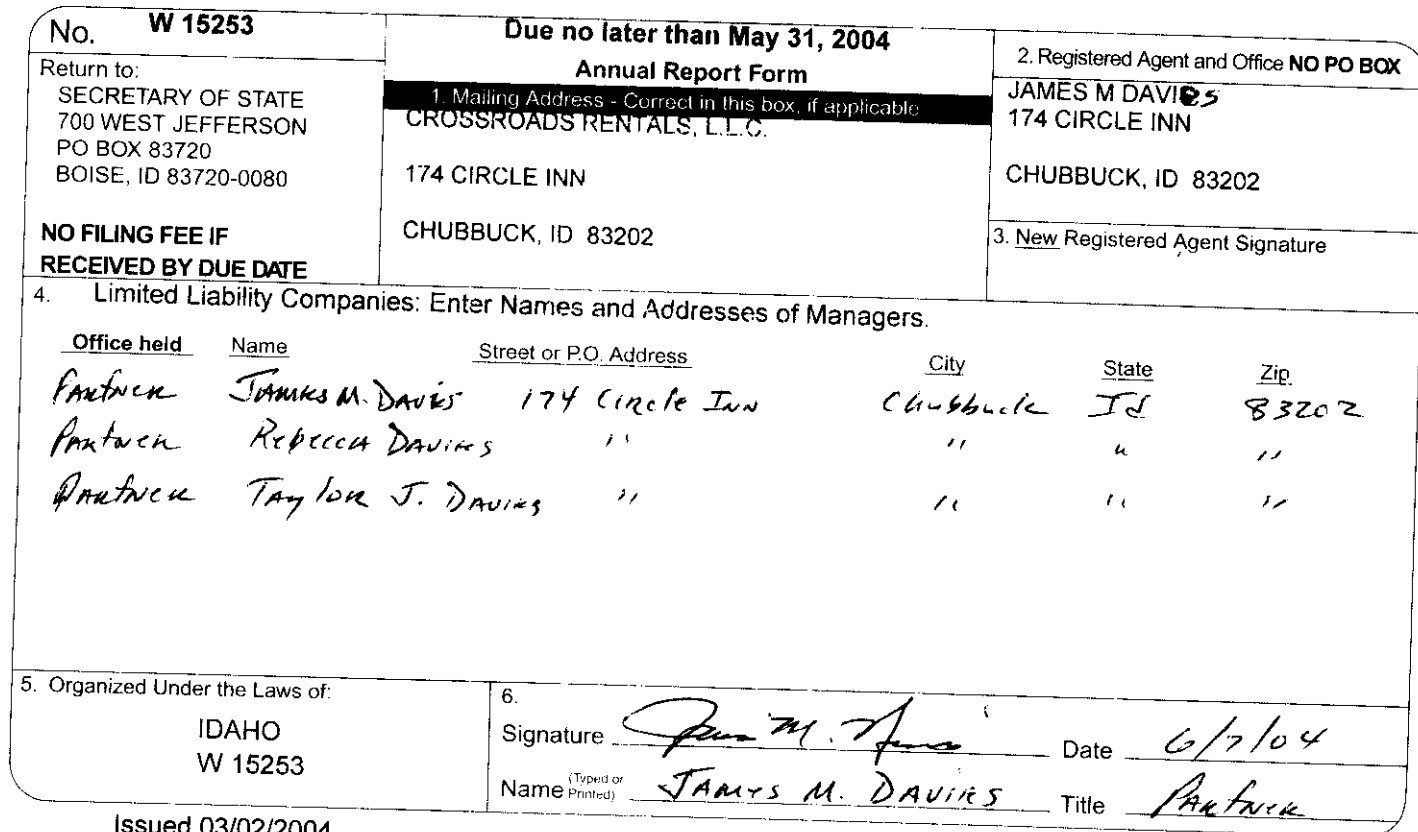 No. W 15253
Return to:
SECRETARY OF STATE
700 WEST JEFFERSON
PO BOX 83720
BOISE, ID 83720-0080
NO FILING FEE IF
RECEIVED BY DUE DATE
Due no later than May 31, 2004
Annual Report Form
1. Mailing Address - Correct in this box, if applicable
CROSSROADS RENTALS, L.L.C.
174 CIRCLE INN
CHUBBUCK, ID 83202
2. Registered Agent and Office NO PO BOX
JAMES M DAVIES
174 CIRCLE INN
CHUBBUCK, ID 83202
3. New Registered Agent Signature
4. Limited Liability Companies: Enter Names and Addresses of Managers.
Office held Name Street or P.O. Address City State Zip
Partner James M. Davies 174 Circle Inn Chubbuck Id 83202
Partner Rebecca Davies " " " "
Partner Taylor J. Davies " " " "
5. Organized Under the Laws of:
IDAHO
W 15253
6.
Signature James M. Davies Date 6/7/04
Name (Typed or Printed) James M. Davies Title Partner
Issued 03/02/2004